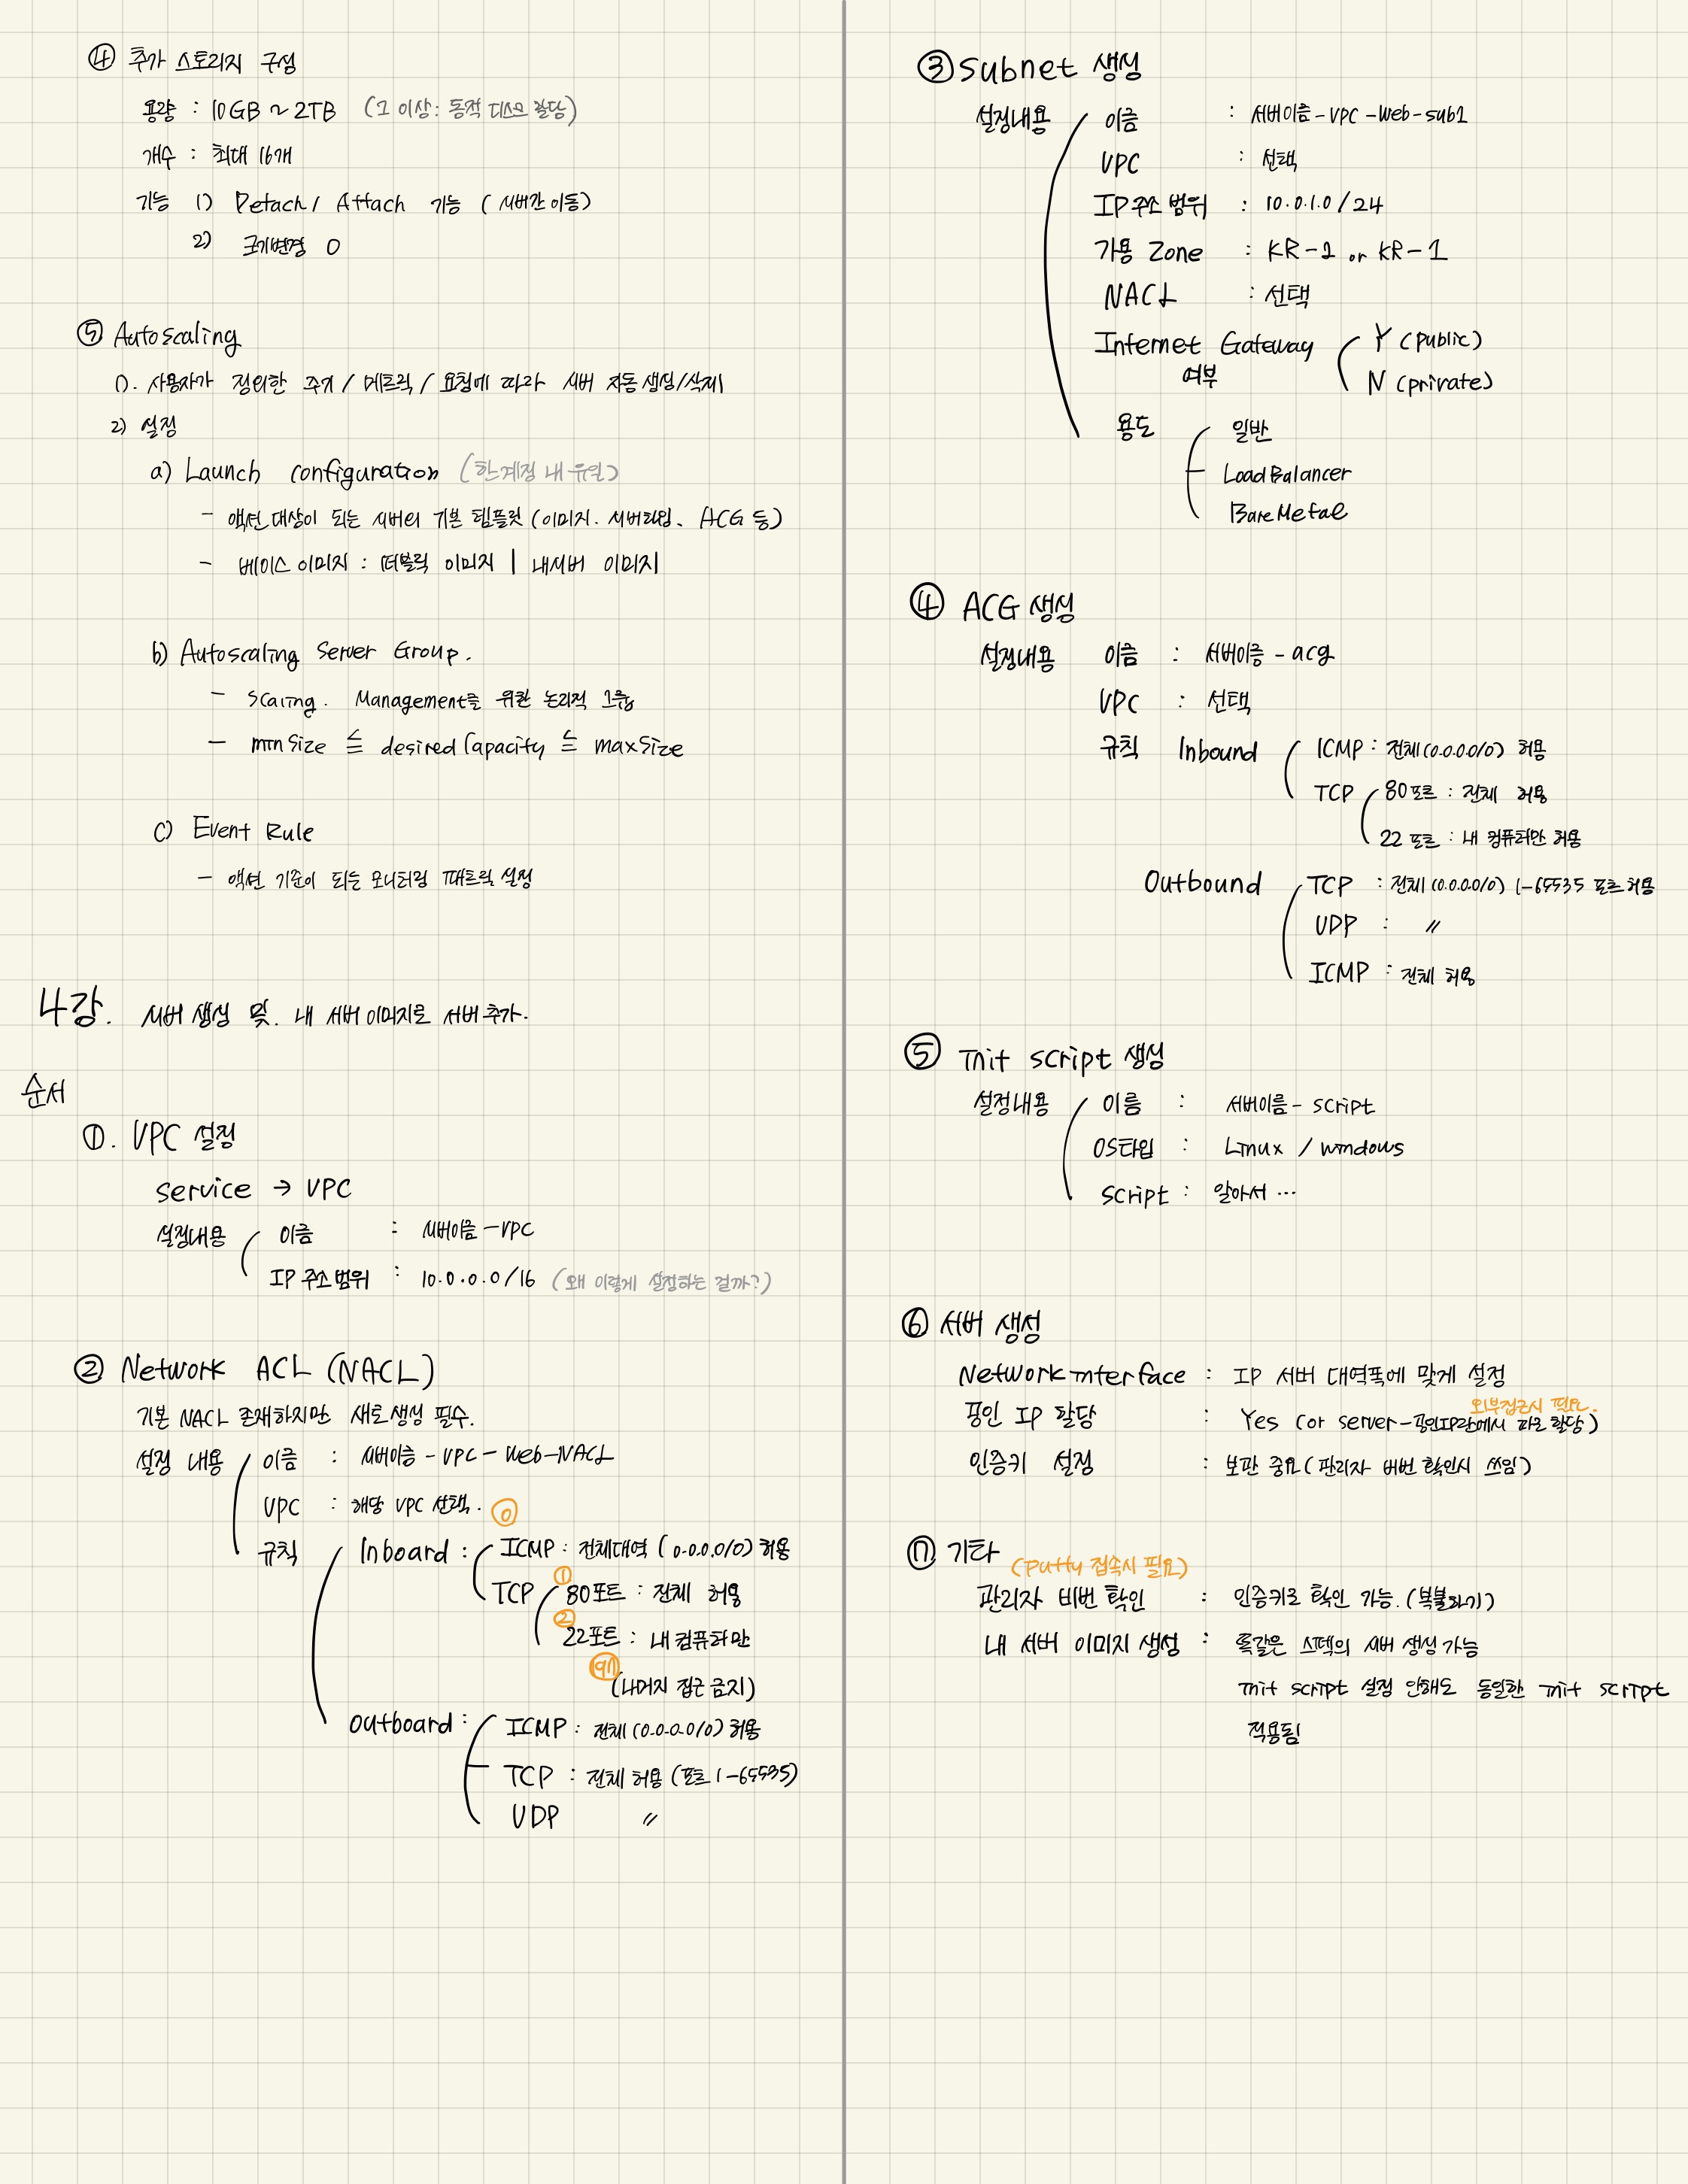 ④ 추가 스토리지 구성
용량 : 10GB ~ 2TB (그 이상: 동적 디스크 할당)
개수 : 최대 16개
기능 1) Detach / Attach 기능 (서버간 이동)
2) 크기변경 O
⑤ Autoscaling
1). 사용자가 정의한 주기 / 메트릭 / 요청에 따라 서버 자동 생성/삭제
2) 설정
a) Launch configuration (한 계정 내 유일)
- 액션 대상이 되는 서버의 기본 템플릿 (이미지. 서버타입. ACG 등)
- 베이스 이미지 : 퍼블릭 이미지 | 내서버 이미지
b) Autoscaling Server Group.
- scaling. Management를 위한 논리적 그룹
- minSize ≦ desiredCapacity ≦ maxSize
c) Event Rule
- 액션 기준이 되는 모니터링 메트릭 설정
4강. 서버 생성 및. 내 서버 이미지로 서버 추가.
순서
①. VPC 설정
service → VPC
설정내용 이름 : 서버이름-VPC
IP 주소 범위 : 10.0.0.0/16 (왜 이렇게 설정하는 걸까?)
② Network ACL (NACL)
기본 NACL 존재하지만 새로 생성 필수.
설정 내용 이름 : 서버이름 - VPC - Web - NACL
VPC : 해당 VPC 선택.
⓪
규칙 Inboard : ICMP : 전체대역 (0.0.0.0/0) 허용
①
TCP 80포트 : 전체 허용
②
22포트 : 내 컴퓨터만
(나머지 접근 금지)
Outboard : ICMP : 전체 (0.0.0.0/0) 허용
TCP : 전체 허용 (포트 1-65535)
UDP 〃
③ Subnet 생성
설정내용 이름 : 서버이름-VPC-Web-sub1
VPC : 선택
IP 주소 범위 : 10.0.1.0/24
가용 Zone : KR-2 or KR-1
NACL : 선택
Internet Gateway Y (public)
여부 N (private)
용도 일반
LoadBalancer
BareMetal
④ ACG 생성
설정내용 이름 : 서버이름 - acg
VPC : 선택
규칙 Inbound ICMP : 전체(0.0.0.0/0) 허용
TCP 80 포트 : 전체 허용
22 포트 : 내 컴퓨터만 허용
Outbound TCP : 전체(0.0.0.0/0) 1-65535 포트 허용
UDP : 〃
ICMP : 전체 허용
⑤ Init script 생성
설정내용 이름 : 서버이름 - script
OS타입 : Linux / windows
script : 알아서 ...
⑥ 서버 생성
Network interface : IP 서버 대역폭에 맞게 설정
외부접근시 필요.
공인 IP 할당 : Yes (or server-공인IP란에서 따로 할당)
인증키 설정 : 보관 중요 (관리자 비번 확인시 쓰임)
⑦ 기타
(putty 접속시 필요)
관리자 비번 확인 : 인증키로 확인 가능. (복붙하기)
내 서버 이미지 생성 : 똑같은 스펙의 서버 생성 가능
init script 설정 안해도 동일한 init script
적용됨